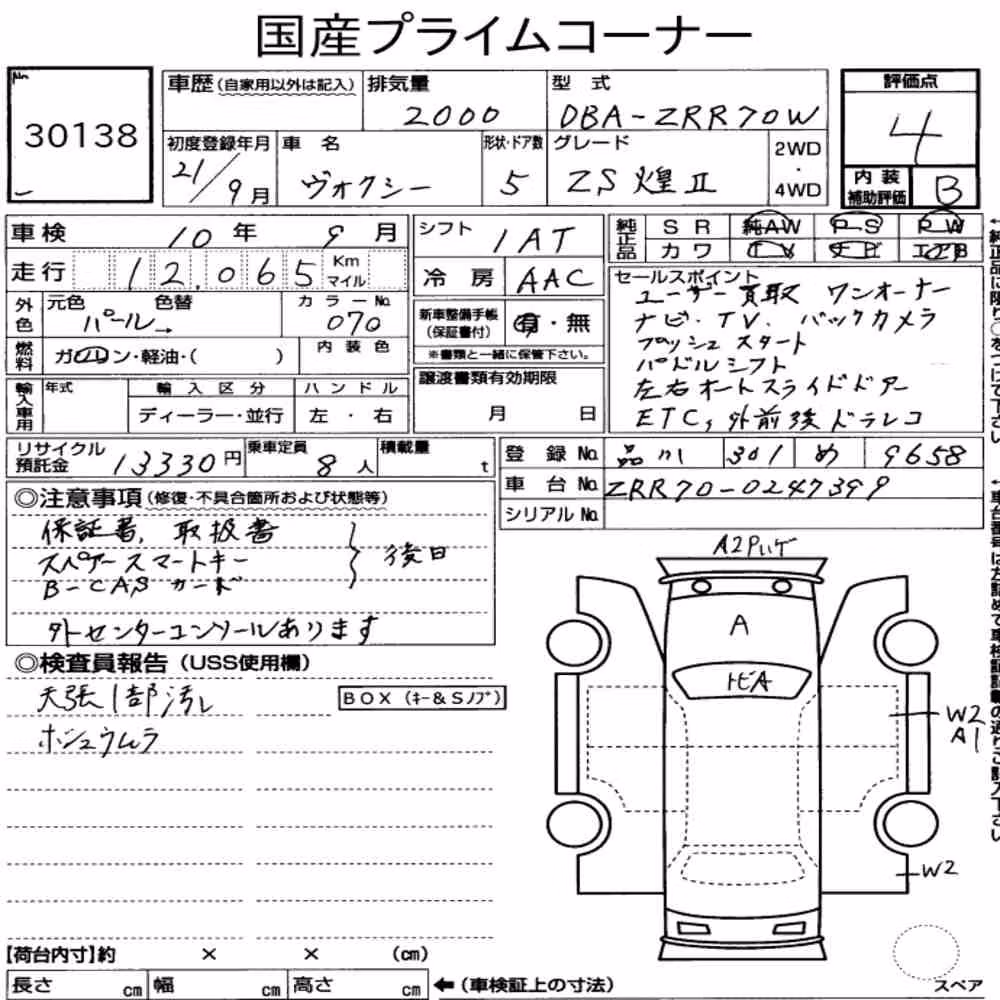 国産プライムコーナー
No.
30138
車歴(自家用以外は記入) 排気量 型式 評価点
2000 DBA-ZRR70W 4
初度登録年月 車名 形状・ドア数 グレード 2WD・4WD
21/9月 ヴォクシー 5 ZS 煌Ⅱ
内装補助評価 B
車検 10年 9月
走行 12.065 Km マイル
シフト 1AT
冷房 AAC
純正品 SR 純AW PS PW
カワ TV ナビ エアB
外色 元色 色替 カラーNo.
パール→ 070
新車整備手帳(保証書付) 有・無
※書類と一緒に保管下さい。
燃料 ガソリン・軽油・( ) 内装色
セールスポイント
ユーザー買取 ワンオーナー
ナビ・TV、バックカメラ
プッシュスタート
パドルシフト
左右オートスライドドアー
ETC,外前後ドラレコ
輸入車用 年式 輸入区分 ハンドル
ディーラー・並行 左・右
譲渡書類有効期限
月 日
リサイクル預託金 13330円 乗車定員 8人 積載量 t
登録No. 品川 301 め 9658
車台No. ZRR70-0247399
シリアルNo.
◎注意事項(修復・不具合箇所および状態等)
保証書、取扱書
スペアースマートキー
B-CASカード
後日
外センターコンソールあります
◎検査員報告(USS使用欄)
天張1部汚レ
ホシュウムラ
BOX (キー&Sノブ)
A2Pハゲ
A
トビA
W2
A1
W2
【荷台内寸】約 × × (cm)
長さ cm 幅 cm 高さ cm ←(車検証上の寸法)
スペア
←純正品に限り○をつけて下さい
←車台番号は左詰めで車検証記載の通りご記入下さい